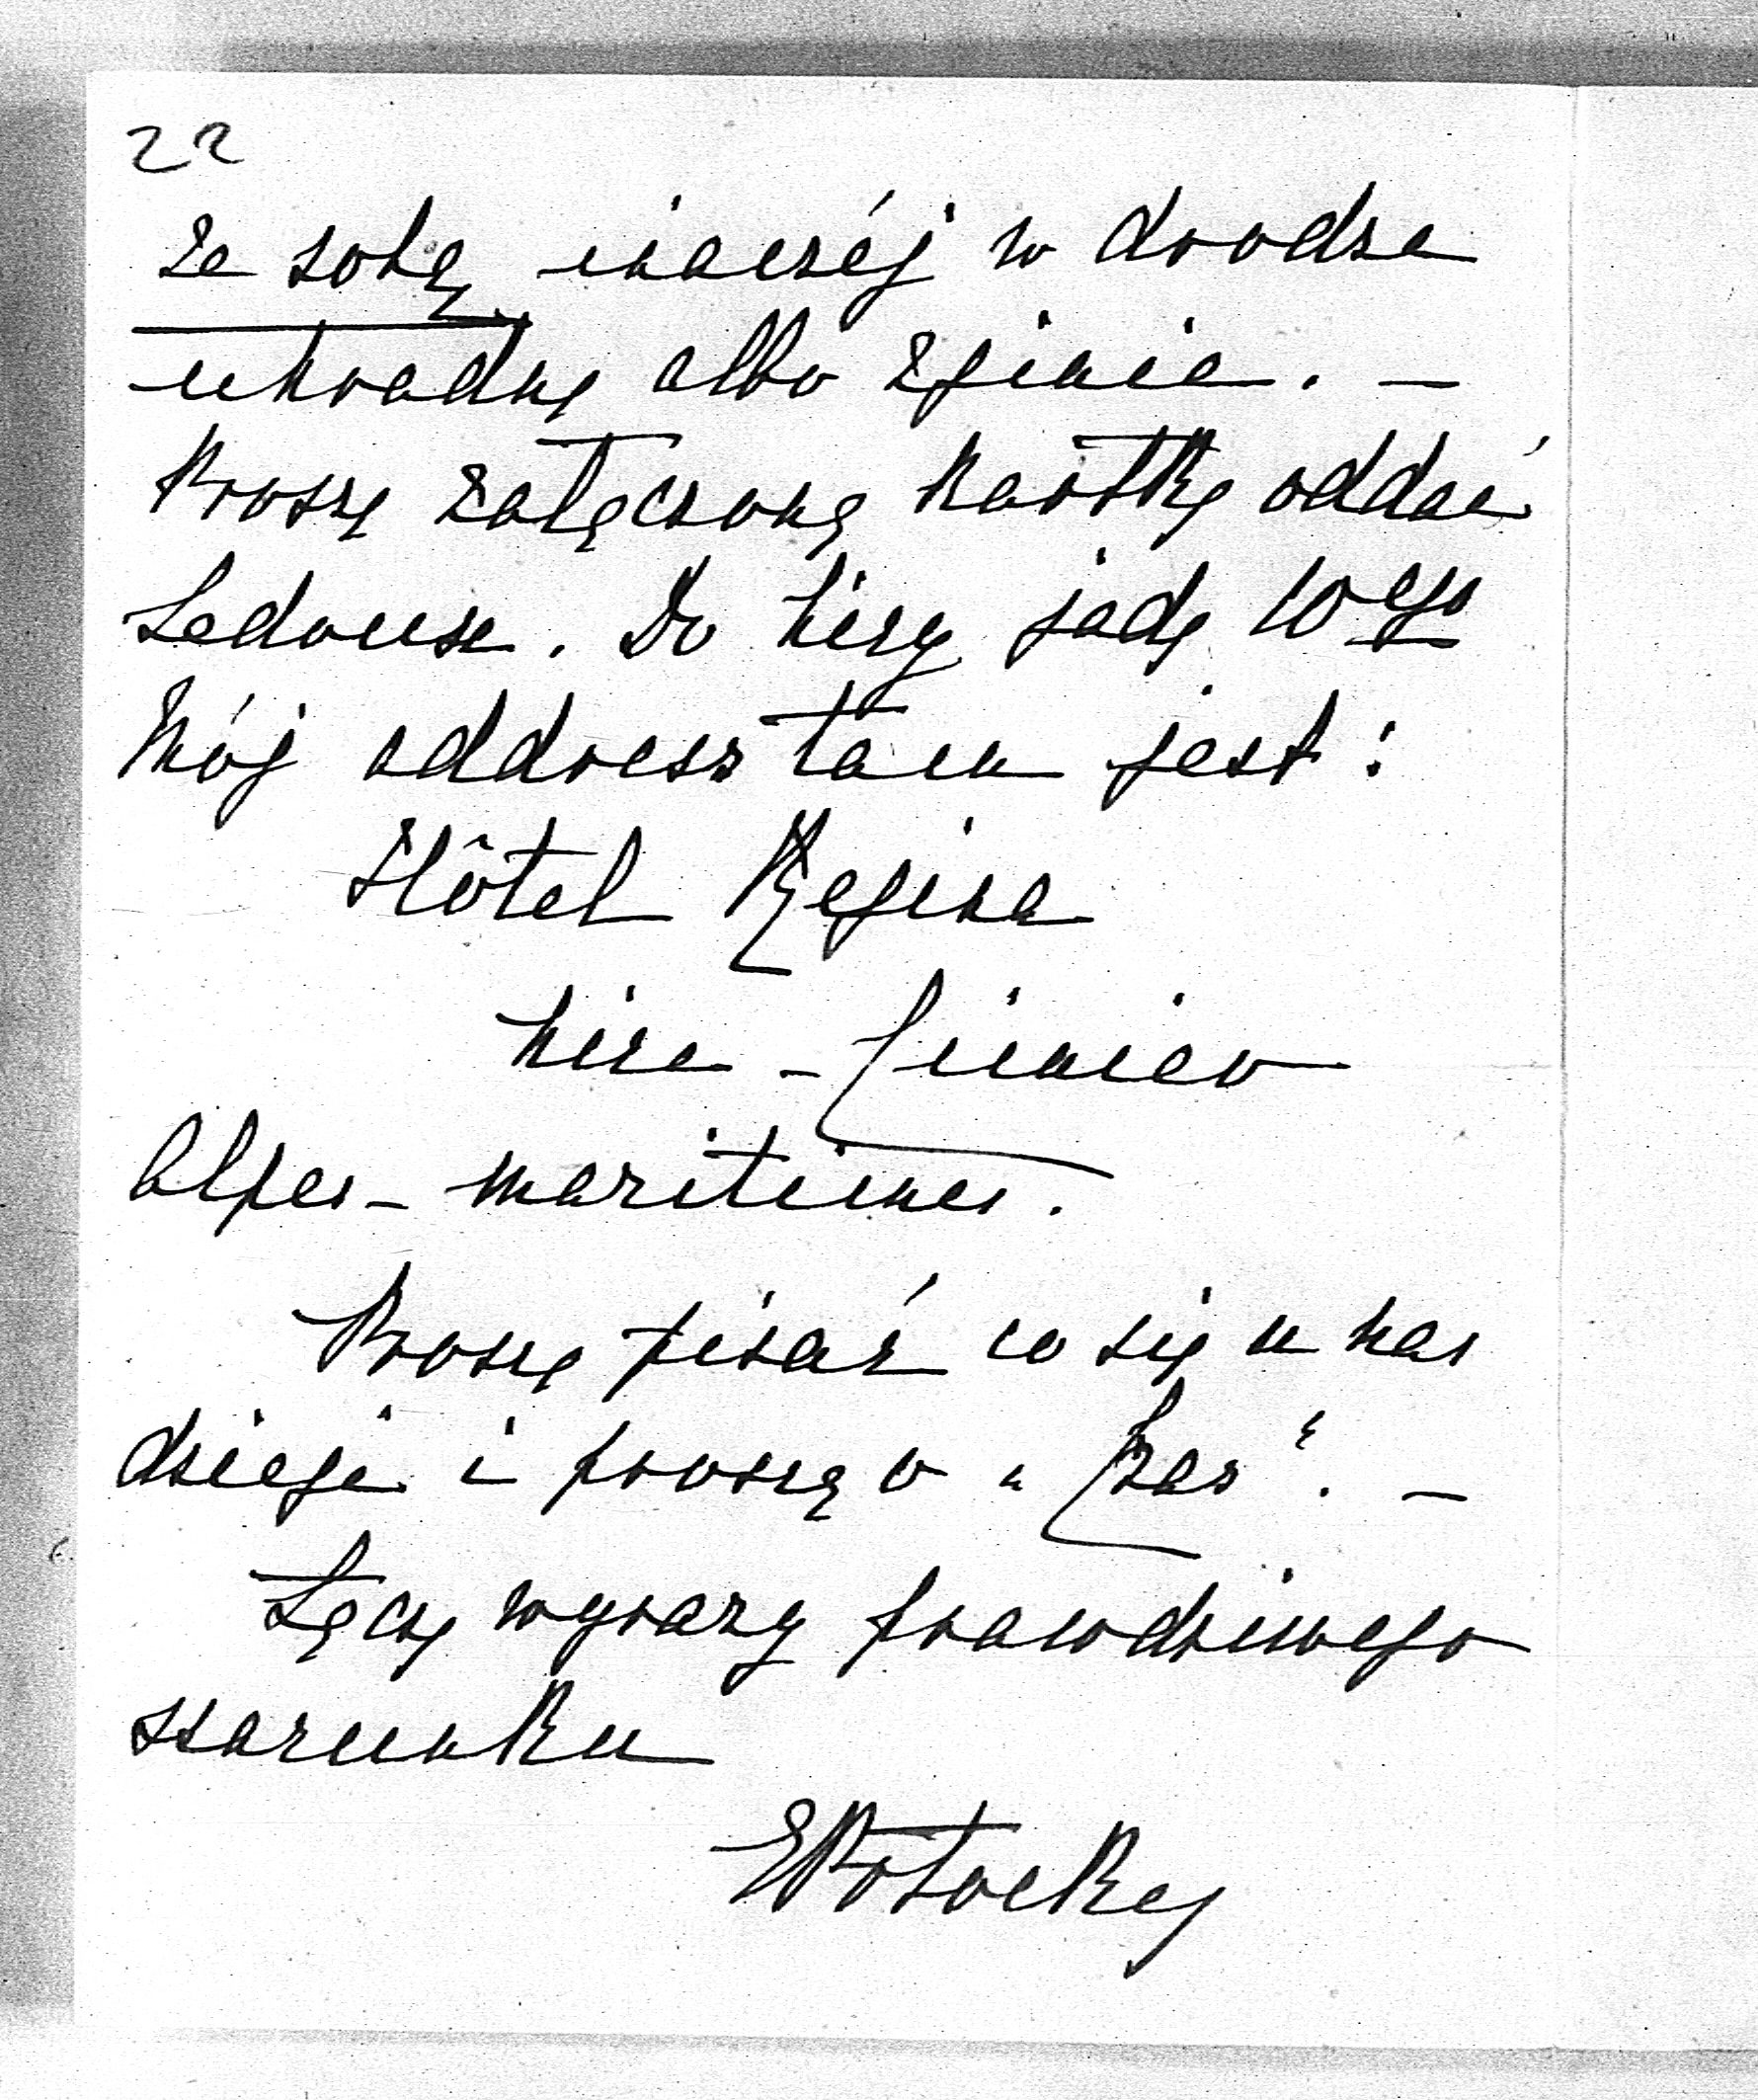 22
ze sobą, inaczéj w drodze
ukradną albo zginie. —
Proszę załączoną kartkę oddać
Ledouse. Do Nicy jadę 10ego
Mój address tam jest:
Hôtel Regina
Nice - Cimiez
Alpes - maritimes.
Proszę pisać co się u nas
dzieje i proszę o "Czas". —
Łączę wyrazy prawdziwego
szacunku
EPotockaj